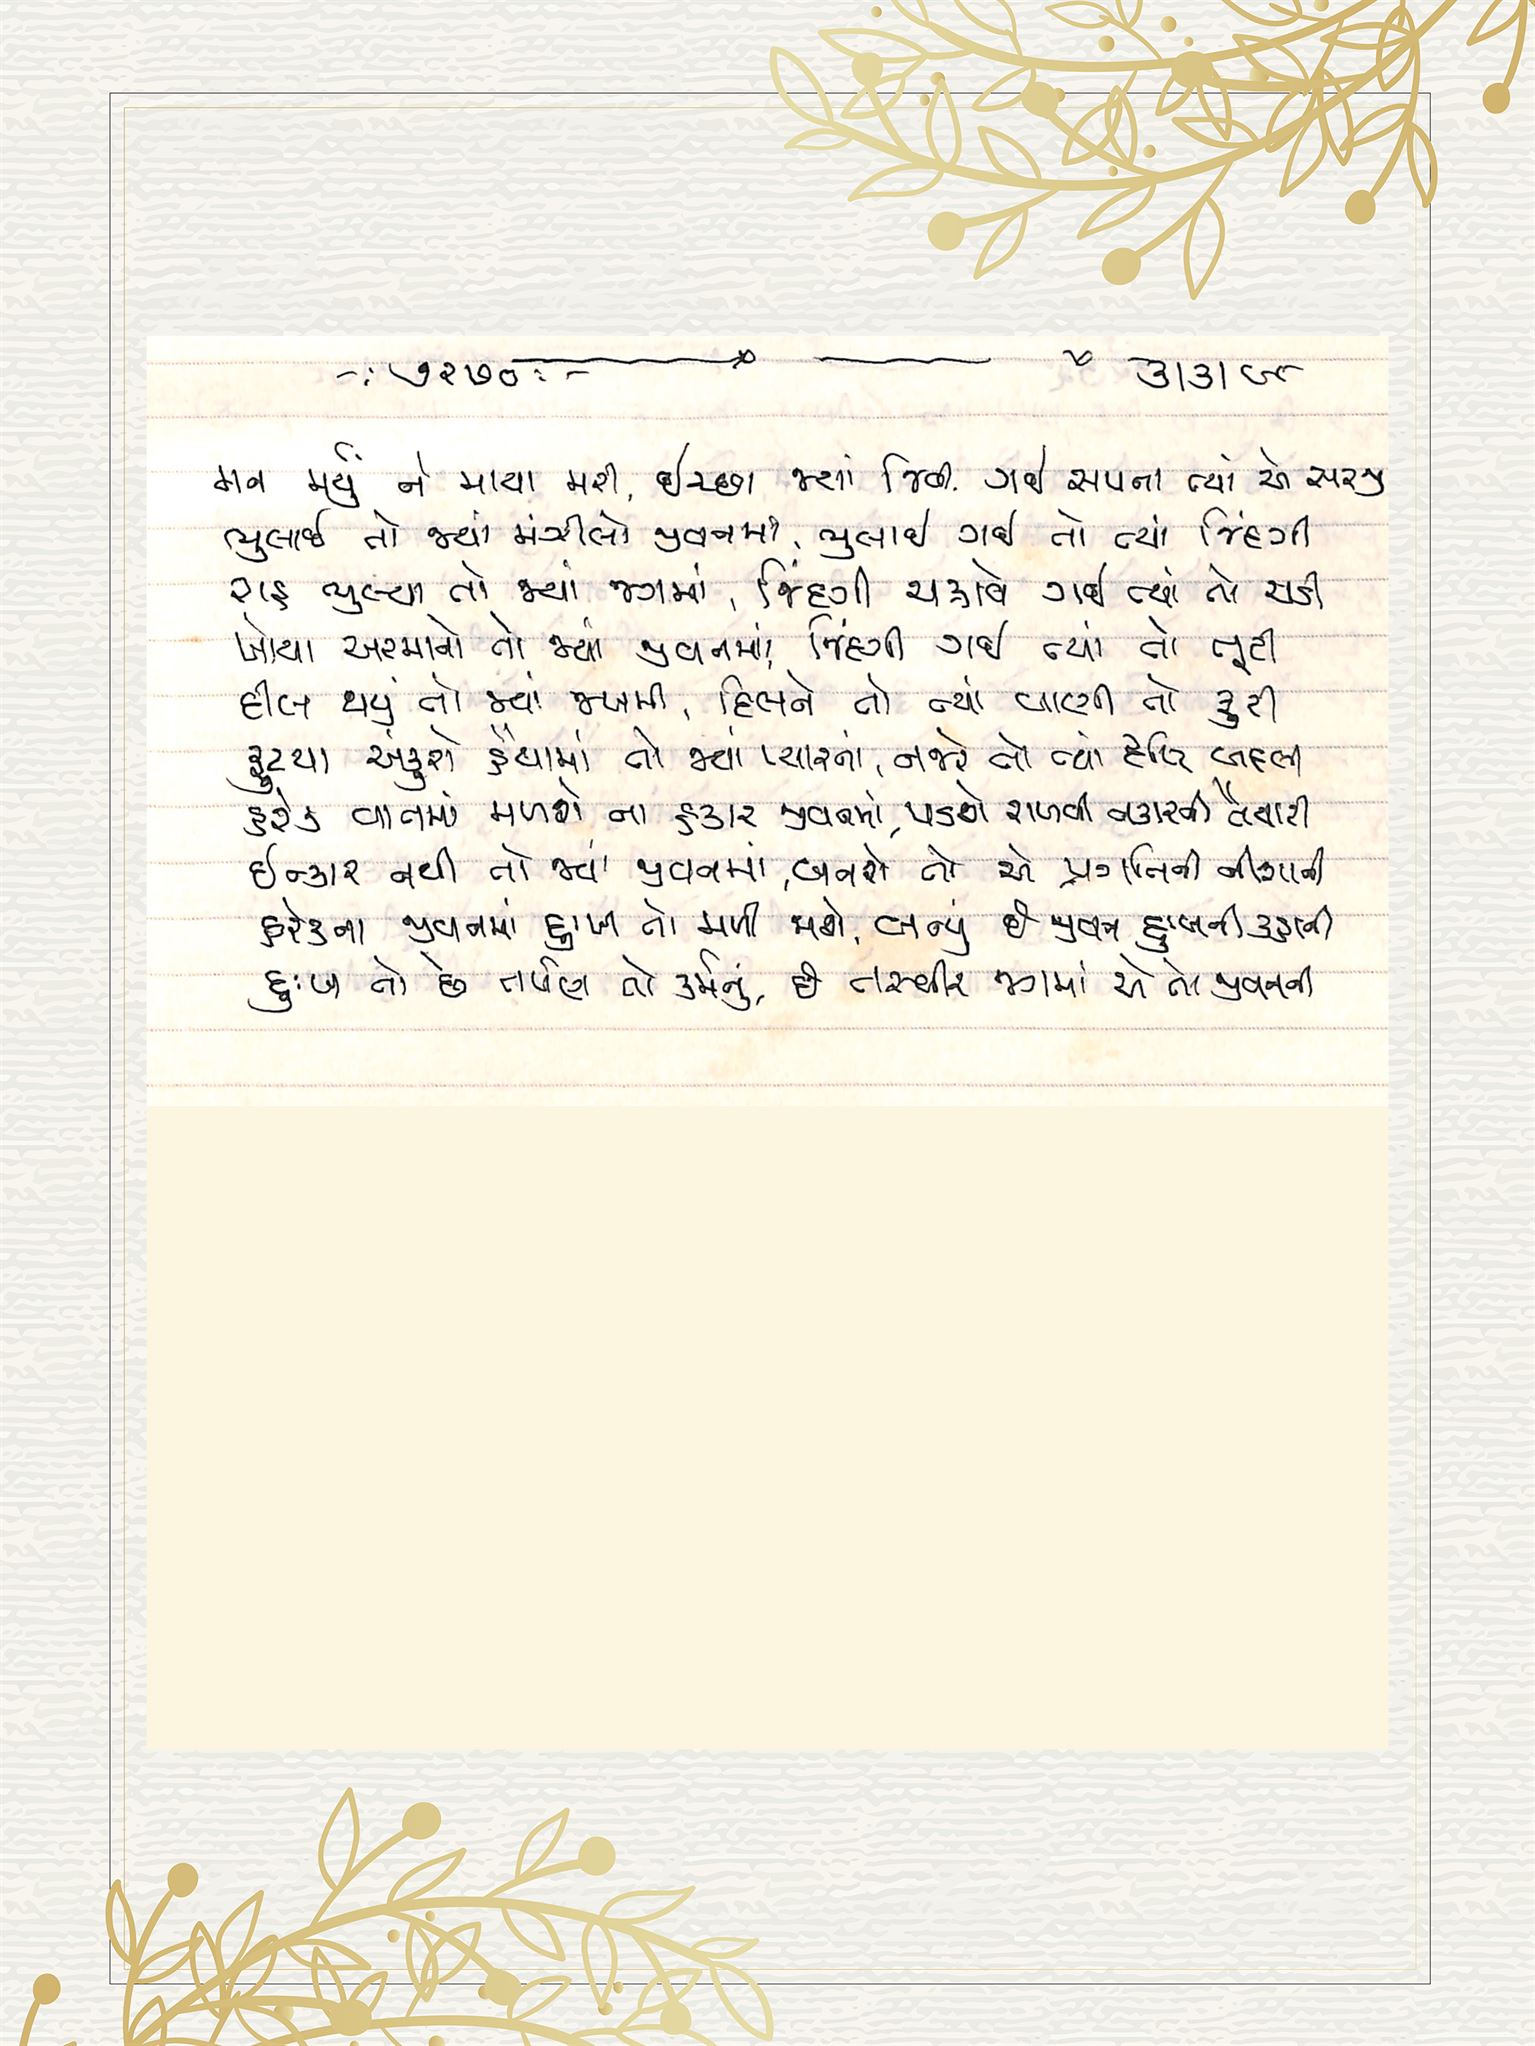 -: ૭૨૭૦ :-
મન મર્યું ને માયા મરી, ઈચ્છા જ્યાં જિવી ગઈ સપના ત્યાં એ સરજી
ભુલાઈ તો જ્યાં મંઝીલો જીવનમાં, ભુલાઈ ગઈ તો ત્યાં જિંદગી
રાહ ભુલ્યા તો જ્યાં જગમાં, જિંદગી ચકરાવે ગઈ ત્યાં તો ચડી
ખોયા અરમાનો તો જ્યાં જીવનમાં, જિંદગી ગઈ ત્યાં તો લૂટી
દીલ થયું તો જ્યાં જખમી, દિલને તો ત્યાં લાગી તો
ફુટયા અંકુરો હૈયામાં તો જ્યાં પ્યારનાં, નજરે તો ત્યાં બદલી
હરેક વાતમાં મળશે ના હકાર જીવનમાં, પડશે રાખવી નકારની તૈયારી
ઈન્કાર નથી તો જ્યાં જીવનમાં, બનશે તો એ પ્રગતિની નીશાની
હરેકના જીવનમાં દુઃખ તો મળી જાશે, બન્યું છે જીવન દુઃખની કહાની
દુઃખ તો છે તર્પણ તો કર્મનું, છે તસ્વીર જગમાં એ તો જીવનની